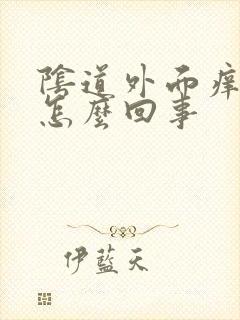 陰道外面痒
怎麼回事
伊藍天